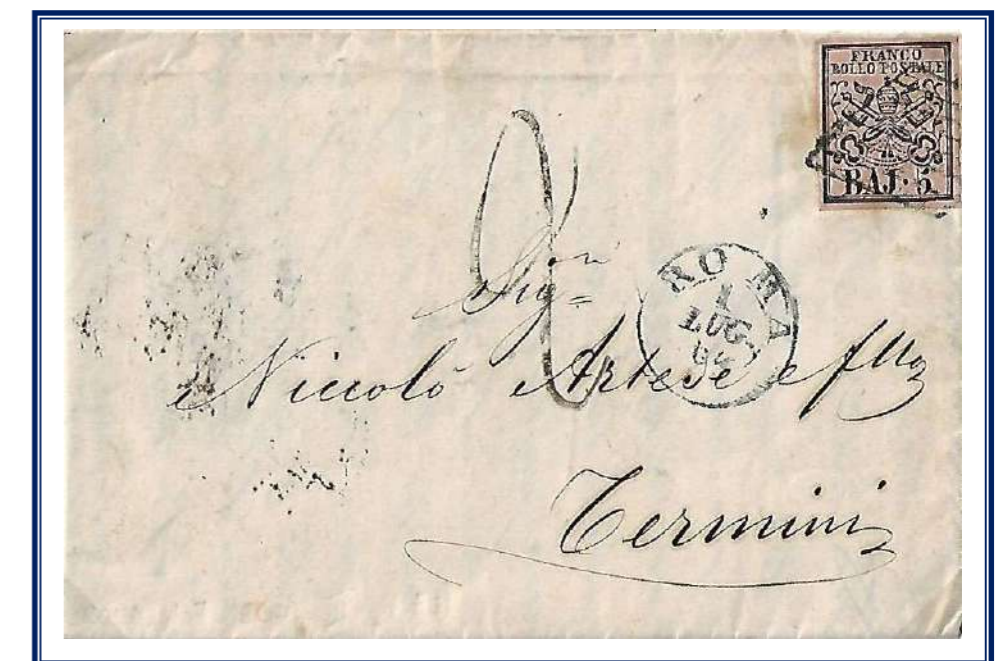 FRANCO
BOLLO POSTALE
BAJ· 5
2
ROMA
1
LUG
Sigon
Niccolò Artese e fllo
Termini